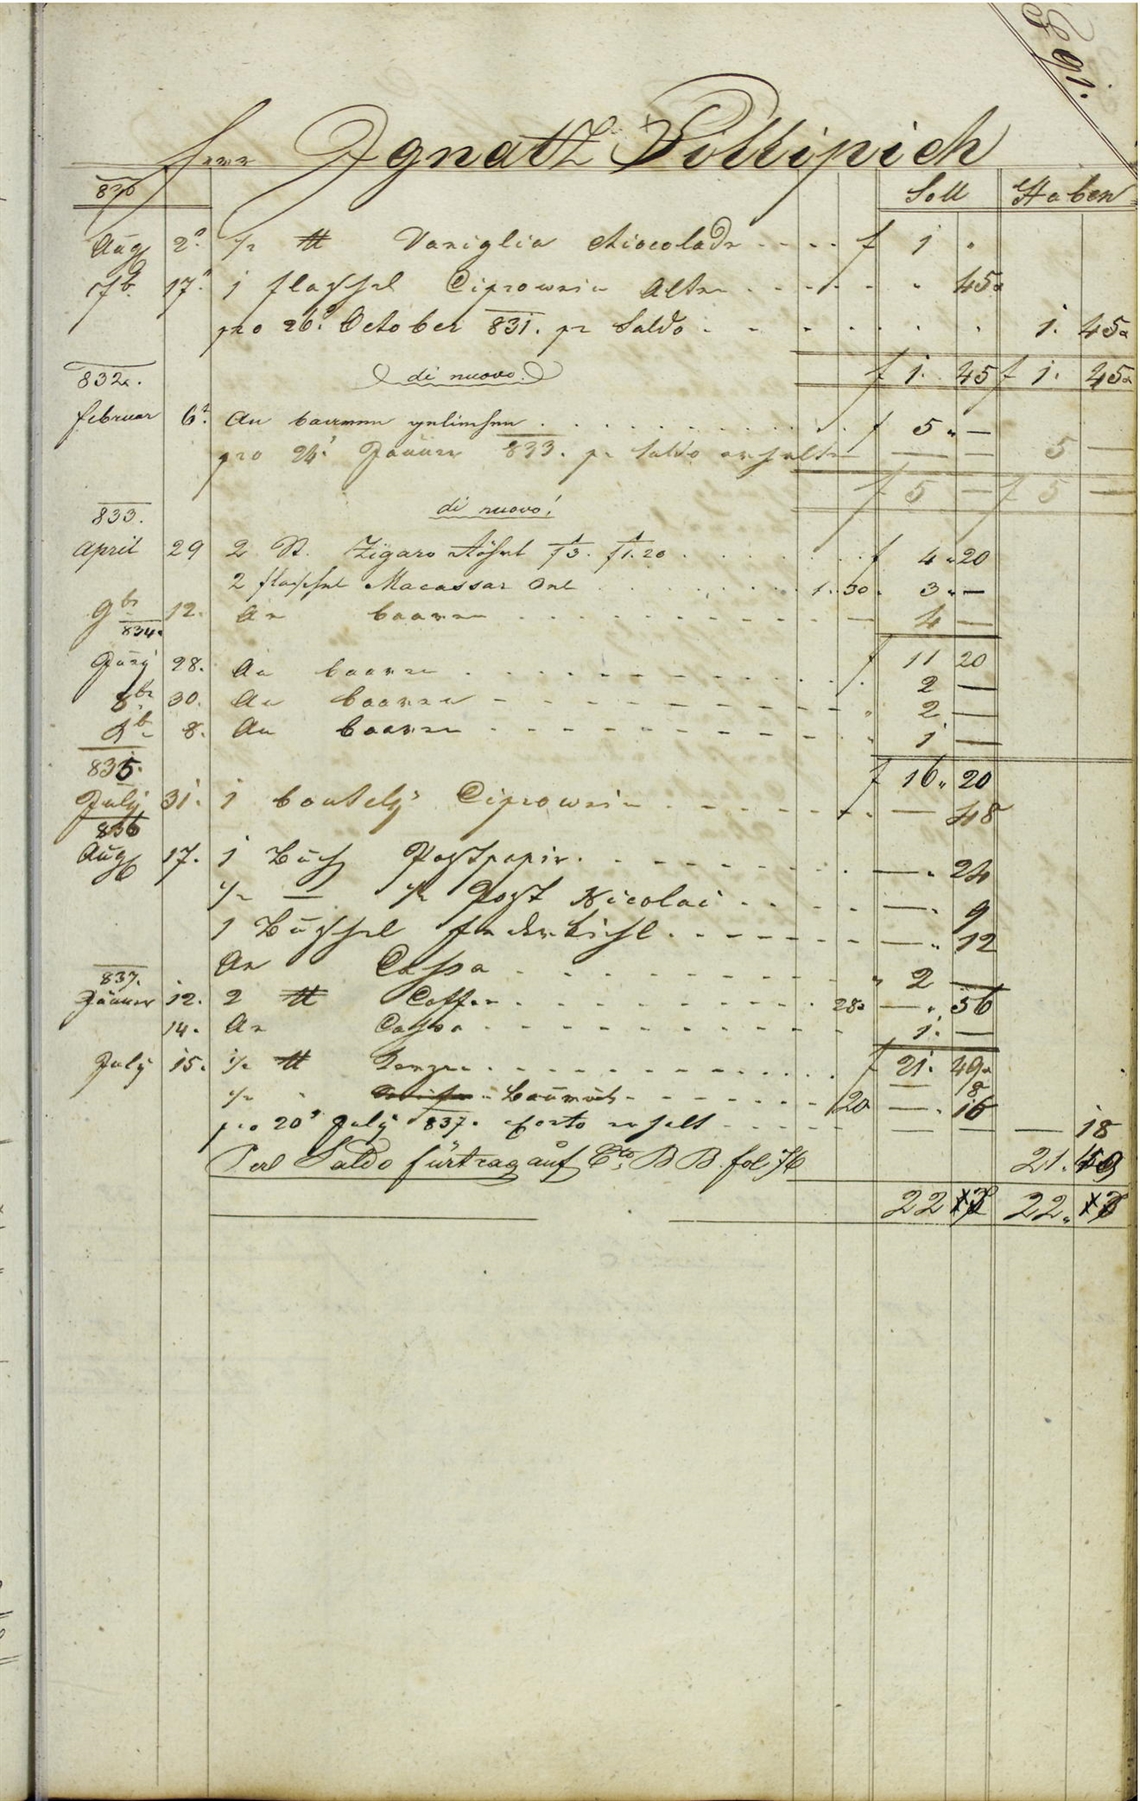 91.
Herr Ignatz Pillipich
830
Soll Haben
Aug 2. ½ ℔ Vaniglia Chiocolade f 1 .
7b. 17. 1 flaschel Ciprowein Alter 45
pro 26. October 831. pr Saldo 1. 45
f 1. 45 f 1. 45
832.
di nuovo.
Februar 6. An baarem geliehen f 5 —
pro 24. Jänner 833. pr Saldo erhalten — — 5 —
f 5 — f 5 —
833.
di nuovo!
April 29 2 St. Zigaro f 3. f 1.20 f 4. 20
2 flaschel Macassar Oel 1. 30. 3. —
9br 12. An baaren 4 —
f 11 20
834.
28. An baaren 2 —
8br 30. An baaren 2 —
8. An baaren 1 —
f 16. 20
835.
July 31. 1 boutely Ciprowein — 48
836
Aug 17. 1 Buch Postpapir — 24
½ — ½ Post Nicolai — 9
1 Büschel Federkihl — 12
An Cassa 2 —
837.
Jänner 12. 2 ℔ Caffee 28 — 56
14. An Cassa 1. —
f 21. 49
July 15. ½ ℔ — 8
½ " Baumöl 20 — 16
pro 20 July 837. porto erhalt — — — 18
Per Saldo fürtrag auf Cto. B B. fol 76 21.
22 22.